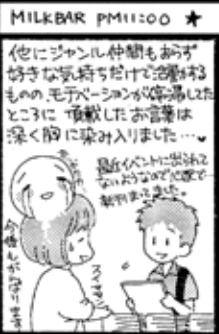 MILKBAR PM11:00 ★
他にジャンル仲間もおらず
好きな気持ちだけで活動する
ものの、モチベーションが停滞してた
ところに 頂戴したお言葉は
深く胸に染み入りました…♥
最近イベントに出られて
ないようなので心配で
新刊まってました。
スイマセン
今後もがんばります